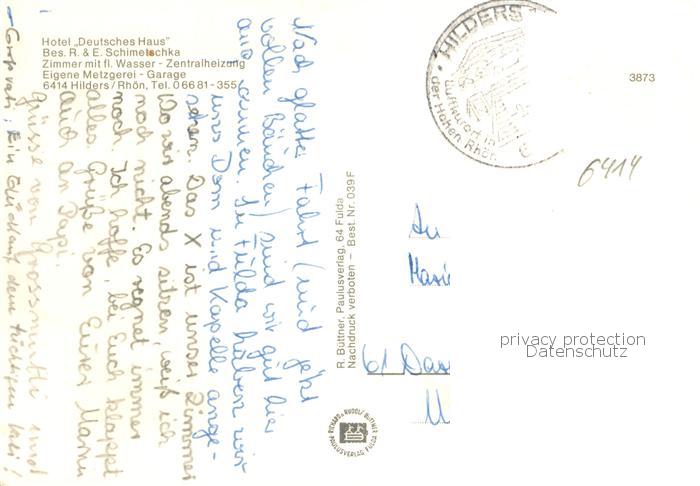 Hotel „Deutsches Haus"
Bes. R. & E. Schimetschka
Zimmer mit fl. Wasser - Zentralheizung
Eigene Metzgerei - Garage
6414 Hilders/Rhön, Tel. 0 66 81 - 355
Nach glatter Fahrt (und jetzt
vollen Bäuchen) sind wir gut hier
angekommen. In Fulda haben wir
uns Dom und Kapelle ange-
sehen. Das X ist unser Zimmer
Wo wir abends sitzen, weiß ich
noch nicht. Es regnet immer
noch. Ich hoffe, bei Euch klappt
alles. Grüße von Eurer Mami
auch an Papi.
Grüsse von Grossmutti und
Grossvati; Ein Glückauf dem tüchtigen
R. Büttner, Paulusverlag, 64 Fulda
Nachdruck verboten – Best. Nr. 039 F
HILDERS
Luftkurort in
der Hohen Rhön
6
3873
6414
An
61 Da
RICHARD & RUDOLF BÜTTNER
PAULUSVERLAG FULDA
privacy protection
Datenschutz